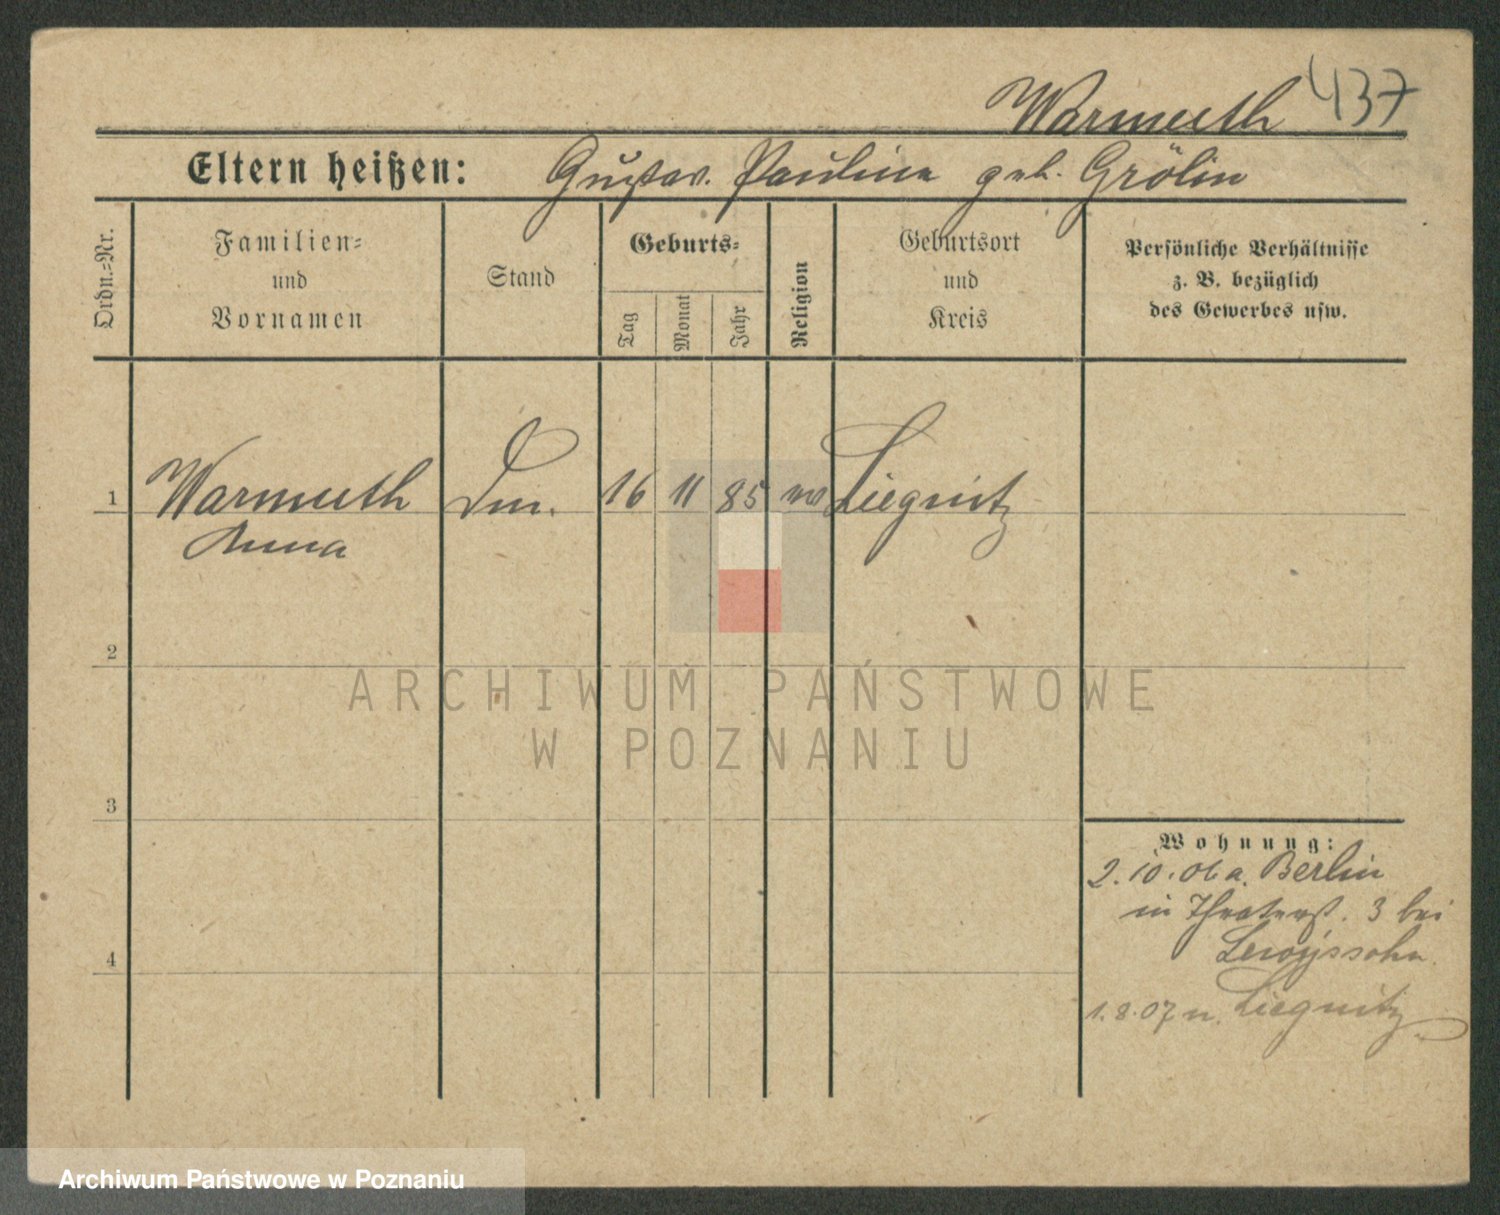 Warmuth 437
Eltern heißen: Gustav. Pauline geb. Grölin
Ordn.=Nr.
Familien=
und
Vornamen
Stand
Geburts=
Tag
Monat
Jahr
Religion
Geburtsort
und
Kreis
Persönliche Verhältnisse
z. B. bezüglich
des Gewerbes usw.
1 Warmuth 16 11 85 Liegnitz
Anna
2
ARCHIWUM PAŃSTWOWE
W POZNANIU
3
Wohnung:
2.10.06 a. Berlin
in Theaterst. 3 bei
4
1.8.07 n. Liegnitz
Archiwum Państwowe w Poznaniu